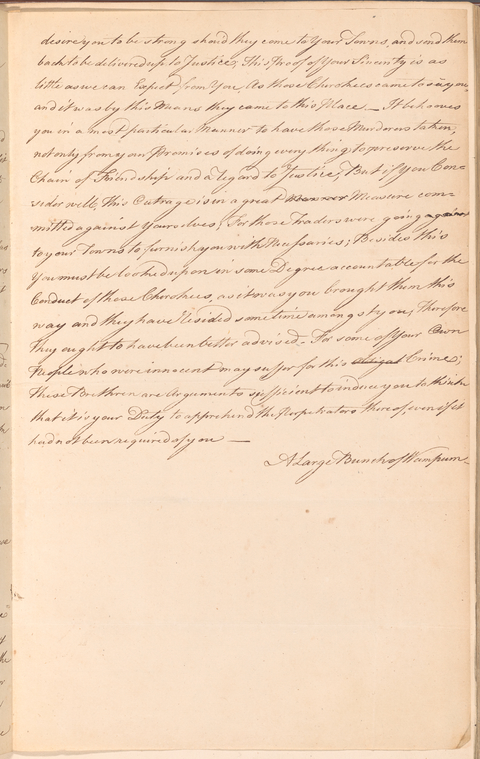 desire you to be strong should they come to Your Towns, and send them
back to be delivered up to Justice, This Proof of Your Sincerity is as
little as we can Expect from You, As those Cherokees came to see you,
and it was by this Means they came to this Place — It behooves
you in a most particular Manner to have those Murderers taken,
not only from your Promises of doing every thing to preserve the
Chain of Friendship and a Regard to Justice; But if you Con=
sider well, this Outrage is in a great Measure com=
mitted against Yourselves; For those Traders were going
to your Towns to furnish you with Necessaries; Besides this
You must be looked upon in some Degree accountable for the
Conduct of those Cherokees, as it was you brought them this
way and they have resided some time amongst you, Therefore
they ought to have been better advised. For some of Your Own
People who were innocent may suffer for this Crime;
These Brethren are Arguments sufficient to induce you to think
that it is your Duty to apprehend the Perpetrators thereof, even if it
had not been required of you —
A Large Bunch of Wampum —